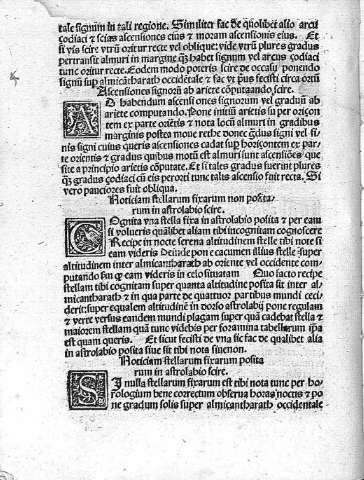 tale signum in tali regione. Similiter fac de quolibet alio arcu
zodiaci & scias ascensiones eius & moram ascensionis eius. Et
si vis scire vtrũ oritur recte vel oblique: vide vtrũ plures gradus
pertransit almuri in margine qȝ habet signum vel arcus zodiaci
tunc oritur recte. Eodem modo poteris scire de occasu ponendo
signũ sup̃ almicãtharath occidẽtale & fac vt p̃us fecisti circa ortũ
Ascensiones signorũ ab ariete cõputando scire.
AD habendum ascensiones signorum vel graduũ ab
ariete computando. Pone initiũ arietis su per orizon
tem ex parte oriẽtis & nota locũ almuri in gradibus
marginis postea moue rethe donec gradus signi vel fi-
nis signi cuius queris ascensiones cadat sup̃ horizontem ex par-
te orientis & gradus quibus motũ est almuri sunt ascensiões que
site a principio arietis cõputate. Et si tales gradus fuerint plures
qȝ gradus zodiaci cũ eis perorti tunc talis ascensio fuit recta. Si
vero pauciores fuit obliqua.
Noticiam stellarum fixarum non posita/
rum in astrolabio scire.
COgnita vna stella fixa in astrolabio posita & per eam
si volueris qualibet aliam tibi incognitam cognoscere
Recipe in nocte serena altitudinem stelle tibi note si
eam videris Deinde pone acumen illius stelle super
altitudinem inter almicantharath ab oriente vel occidente com-
putando sm̃ qȝ eam videris in celo situatam Quo facto recipe
stellam tibi cognitam super quanta altitudine posita sit inter al-
micantharath & in qua parte de quattuor partibus mundi ceci-
derit: super equalem altitudinẽ in dorso astrolabij pone regulam
& verte versus eandem mundi plagam super quã cadebat stella &
maiorem stellam quã tunc videbis per foramina tabellarum ip̃a
est quam queris. Et sicut fecisti de vna sic fac de qualibet alia
in astrolabio posita siue sit tibi nota siue non.
Noticiam stellarum fixarum posita
rum in astrolabio scire.
SI nulla stellarum fixarum est tibi nota tunc per ho/
rologium bene correctum obserua horas noctis & po
ne gradum solis super almicantharath occidentale